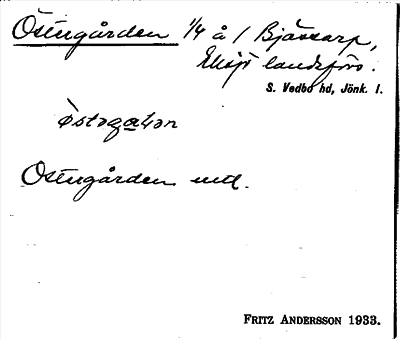 Östergården 1/4 å 1 Bjässarp,
Eksjö landsförs.
S. Vedbo hd, Jönk. l.
östəgatən
Östergården uttl.
FRITZ ANDERSSON 1933.